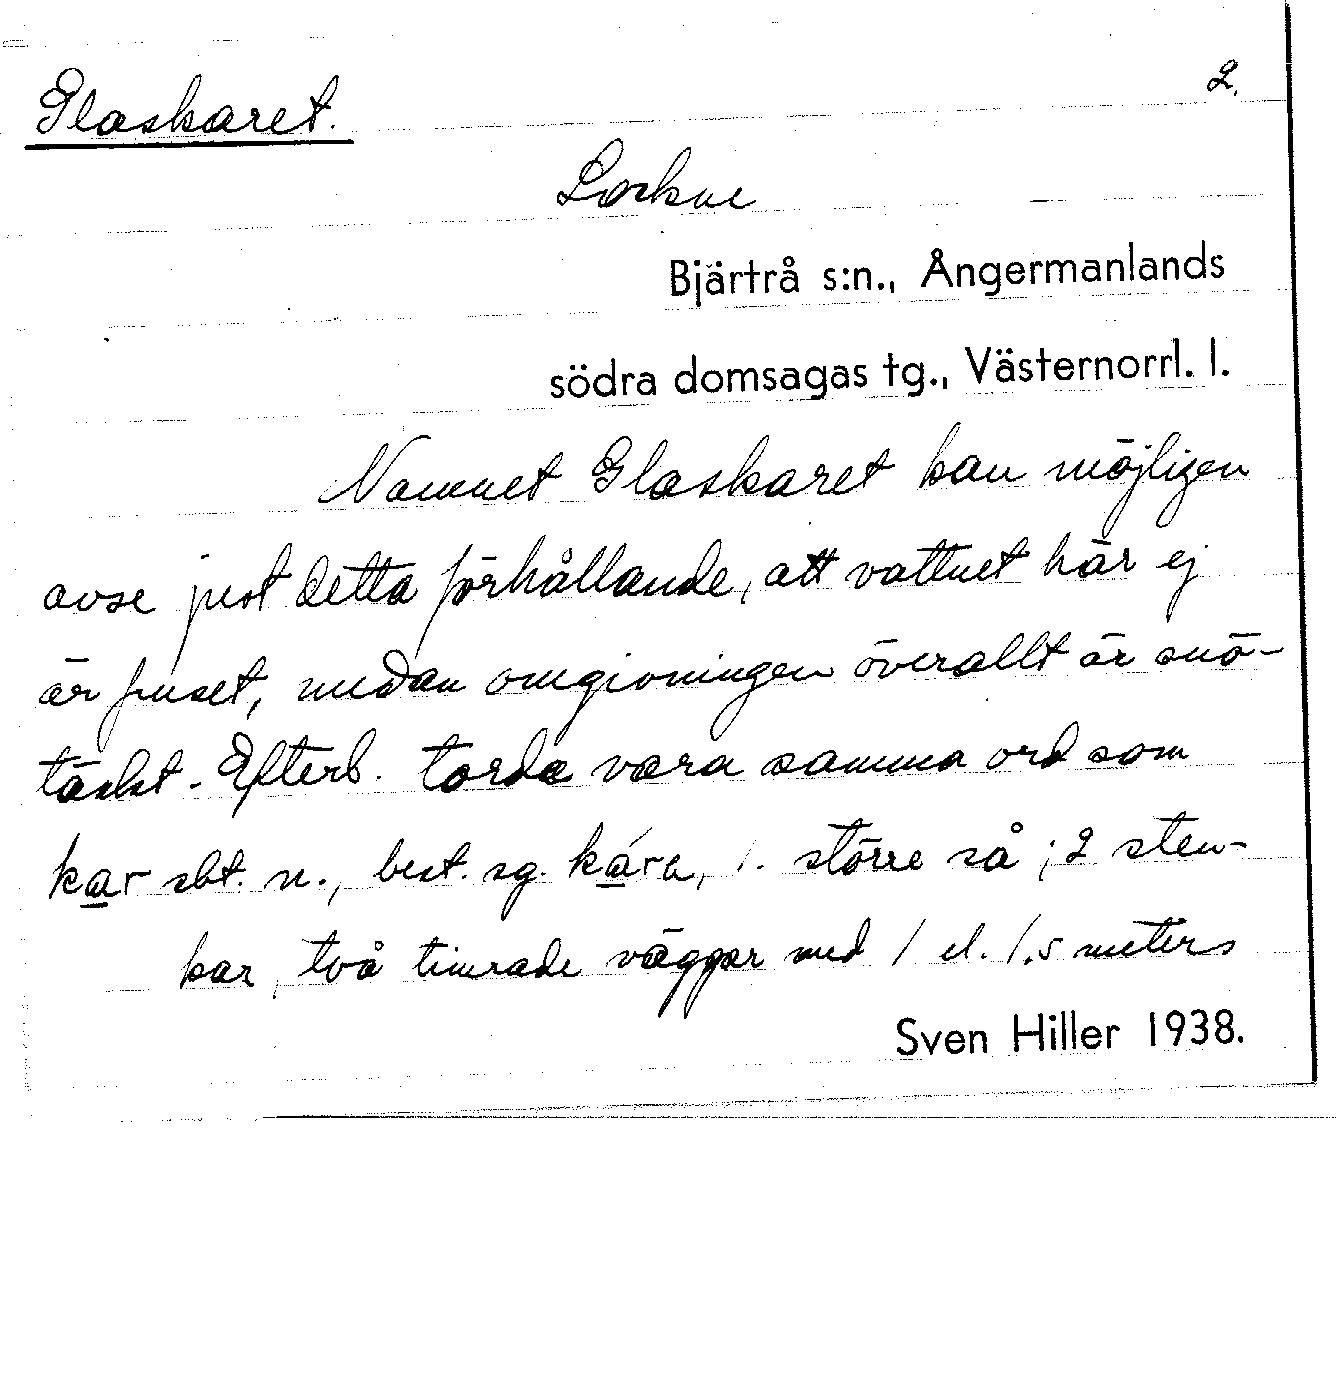 Glaskaret. 2.
Lockne
Bjärtrå s:n., Ångermanlands
södra domsagas tg., Västernorrl. l.
Namnet Glaskaret kan möjligen
avse just detta förhållande, att vattnet här ej
är fruset, medan omgivningen överallt är snö-
täckt. Efterl. torde vara samma ord som
kar sbt. n., best. sg. kára, 1. större så; 2 sten-
kar, två timrade väggar med 1 el. 1.5 meters
Sven Hiller 1938.